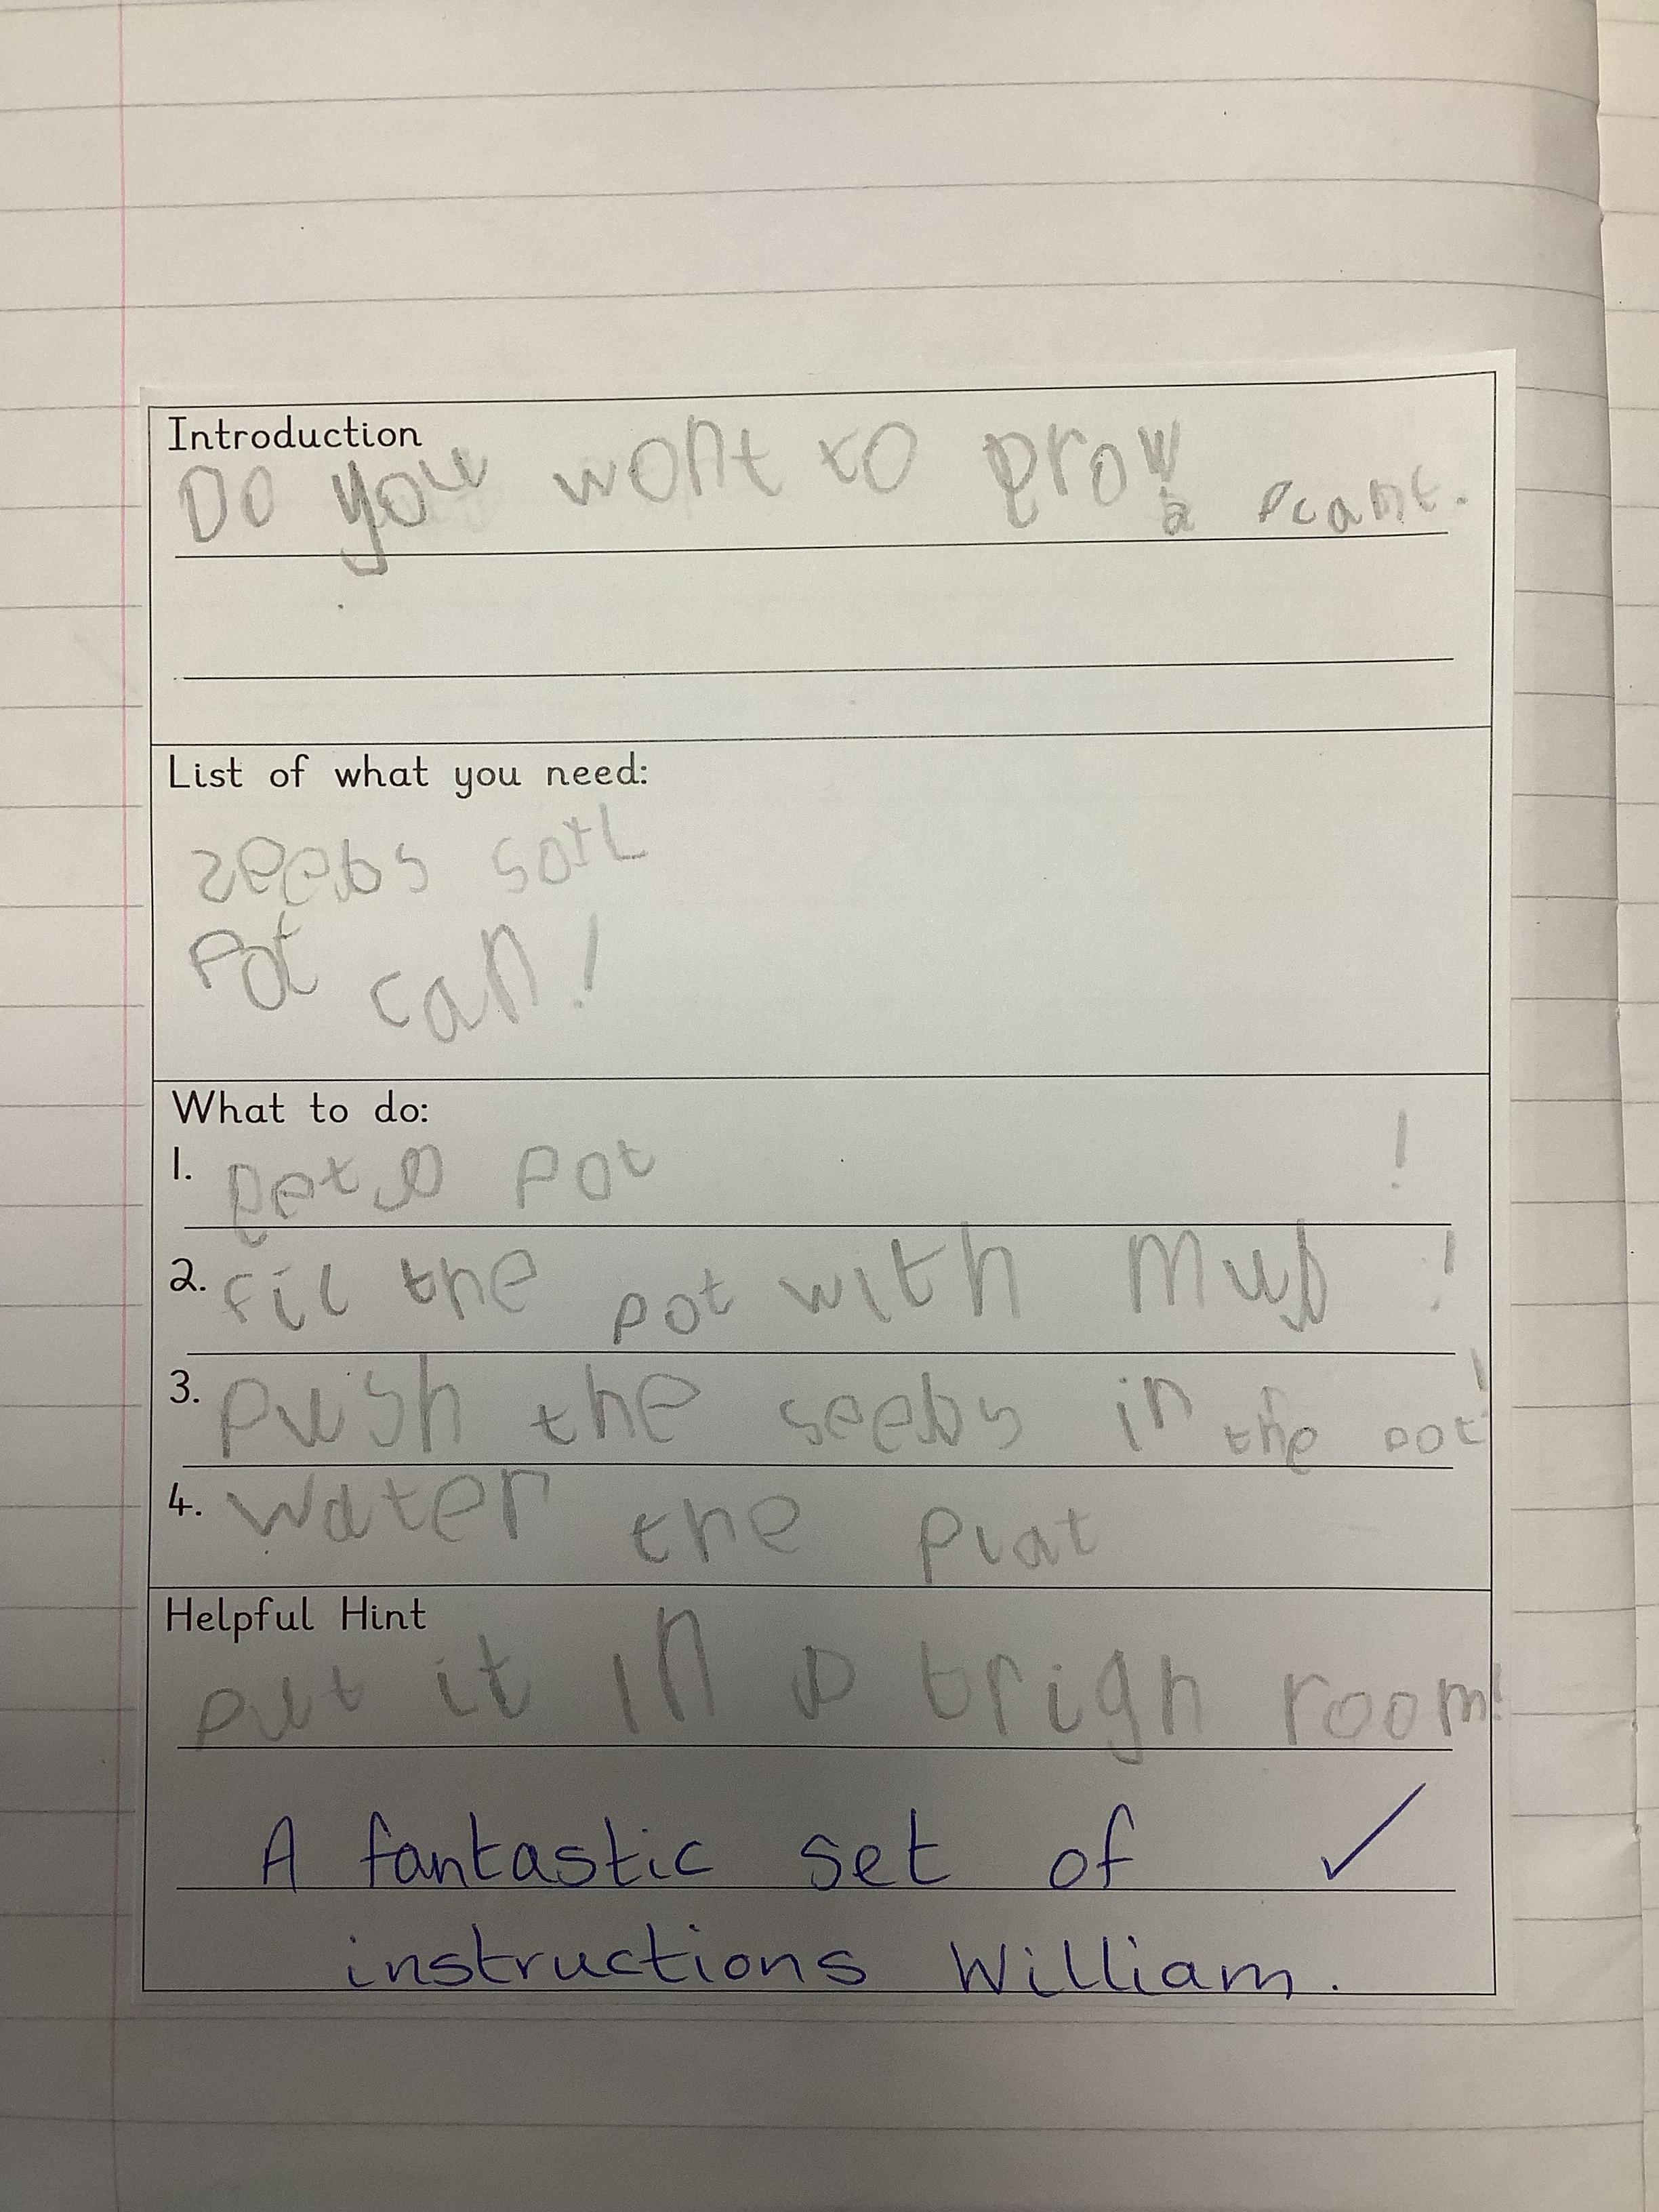 Introduction
Do you wont to grow
a plant.
List of what you need:
seebs soil
Pot can!
What to do:
1. get a pot !
2. fil the pot with mub !
3. push the seebs in the pot!
4. water the plat
Helpful Hint
put it in a brigh room!
A fantastic set of ✓
instructions William.